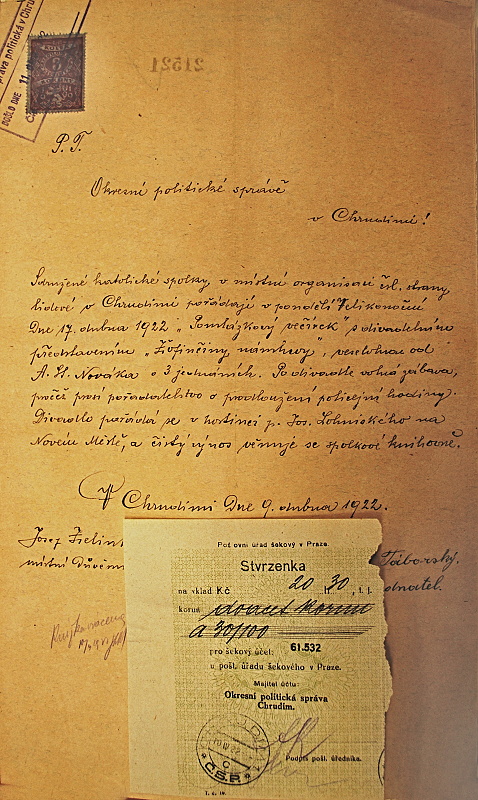 práva politická v Chru
DOŠLO DNE 11.
21521
P. T.
Okresní politické správě
v Chrudimi!
Sdružené katolické spolky, v místní organisaci čsl. strany
lidové v Chrudimi pořádají v pondělí Velikonoční
Dne 17. dubna 1922 „Pomlázkový večírek" s divadelním
představením „Žofinčiny námluvy", veselohra od
A. St. Nováka o 3 jednáních. Po divadle volná zábava,
pročež prosí pořadatelstvo o prodloužení policejní hodiny.
Divadlo pořádá se v hostinci p. Jos. Lohnického na
Novém Městě, a čistý výnos věnuje se spolkové knihovně.
V Chrudimi Dne 9. dubna 1922.
Josef Zelin
Táborský,
místní Důvěrn
dnatel.
Poštovní úřad šekový v Praze.
Stvrzenka
na vklad Kč 20 h 30, t. j.
korun dvacet korun
a 30/100
pro šekový účet: 61.532
u pošt. úřadu šekového v Praze.
Majitel účtu:
Okresní politická správa
Chrudim.
Podpis pošt. úředníka.
Č.S.R.